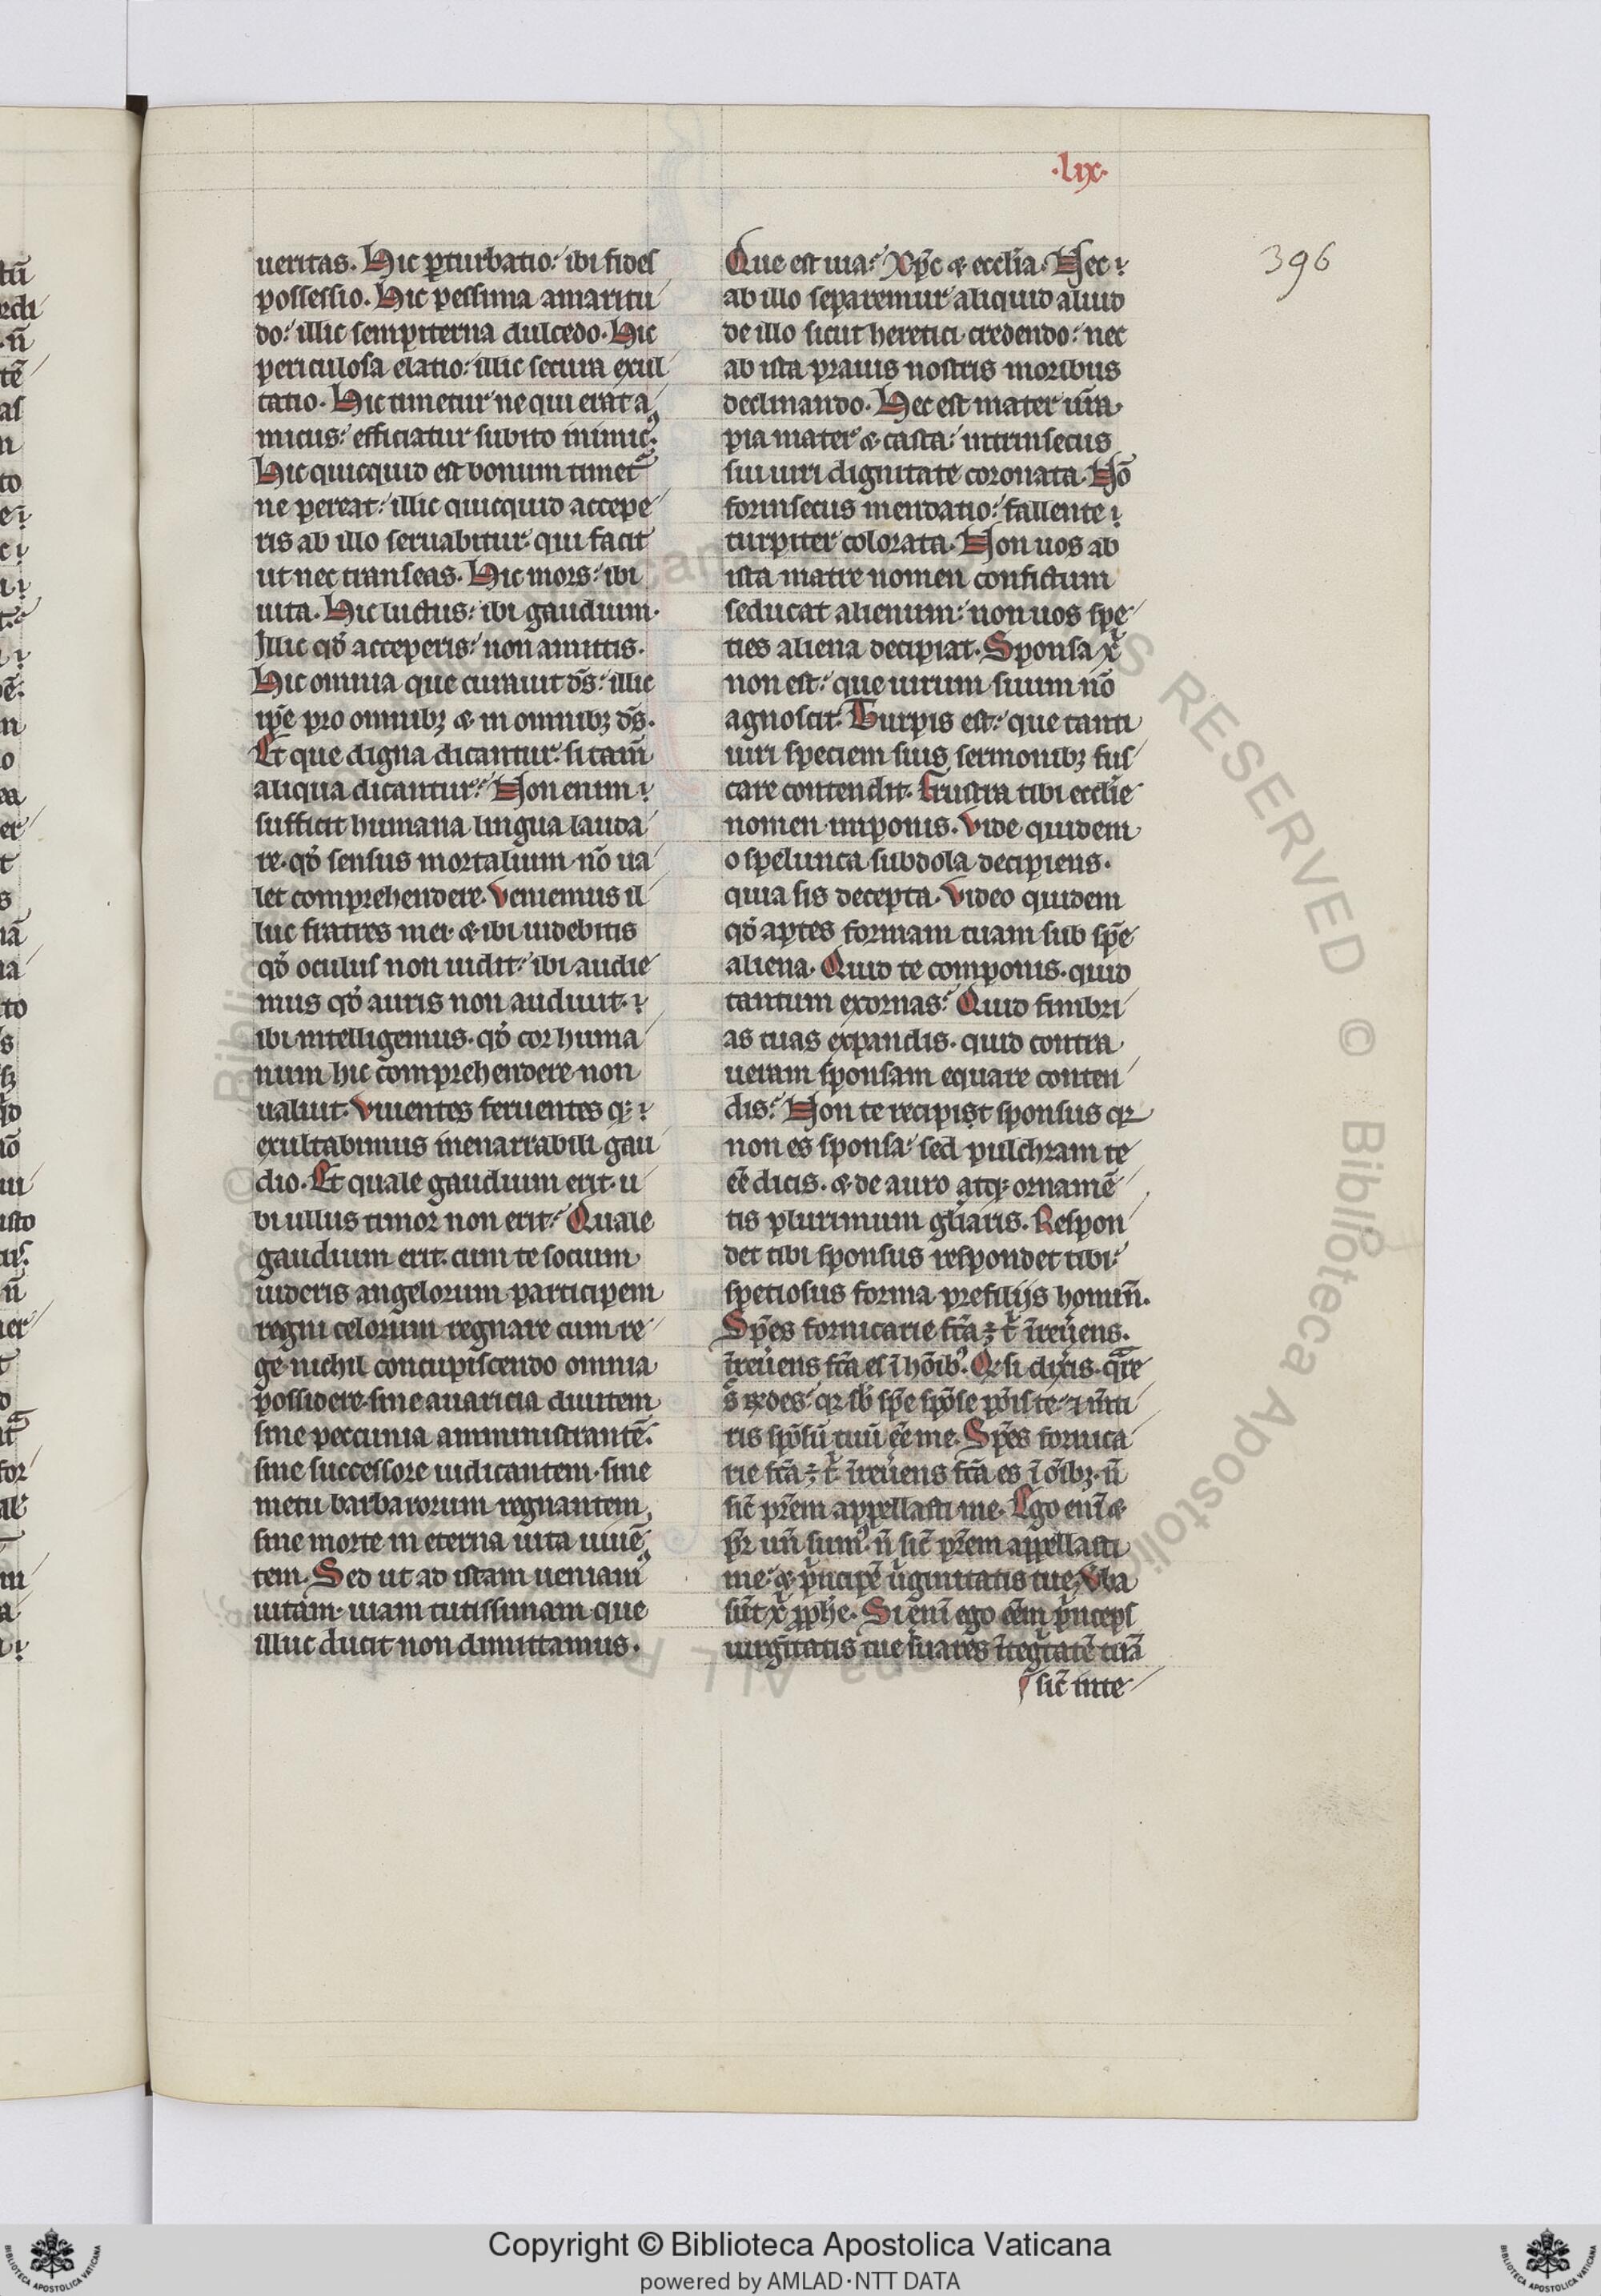 ·lix·
396
ueritas. Hic ꝑturbatio: ibi fides
possessio. Hic pessima amaritu
do: illic sempiterna dulcedo. Hic
periculosa elatio: illic secura exul
tatio. Hic timetur ne qui erat a
micus: efficiatur subito inimicꝰ.
Hic quicquid est bonum timet᷑
ne pereat: illic quicquid accepe
ris ab illo seruabitur: qui facit
ut nec transeas. Hic mors: ibi
uita. Hic luctus: ibi gaudium.
Illic qď acceperis: non amittis.
Hic omnia que curauit dš: illic
ip̄e pro omnibꝫ & in omnibꝫ dš.
Et que digna dicantur. si tam̄
aliqua dicantur? Non enim
sufficit humana lingua lauda
re. qď sensus mortalium nō ua
let comprehendere. Veniemus il
luc fratres mei. & ibi uidebitis
qď oculus non uidit: ibi audie
mus qď auris non audiuit.
ibi intelligemus. qď cor huma
num hic comprehendere non
ualuit. Viuentes feruentes qꝫ
exultabimus inenarrabili gau
dio. Et quale gaudium erit. u
bi ullus timor non erit? Quale
gaudium erit. cum te socium
uideris angelorum participem
regni celorum regnare cum re
ge. nichil concupiscendo omnia
possidere. sine auaricia diuitem
sine peccunia amministrantē.
sine successore iudicantem. sine
metu barbarorum regnantem
sine morte in eterna uita uiuē
tem. Sed ut ad istam ueniamꝰ
uitam. uiam tutissimam que
illuc ducit non dimittamus.
Que est uia? Xp̄c & ecclīa. Nec
ab illo separemur aliquid aliud
de illo sicut heretici credendo: nec
ab ista prauis nostris moribus
declinando. Hec est mater ūra
pia mater & casta: intrinsecus
sui uiri dignitate coronata. Nō
forinsecus mendatio: fallente
turpiter colorata. Non uos ab
ista matre nomen confictum
seducat alienum: non uos spe
ties aliena decipiat. Sponsa xp̄i
non est: que uirum suum nō
agnoscit. Turpis est: que tanti
uiri speciem suis sermonibꝫ fus
care contendit. Frustra tibi ecclīe
nomen imponis. Vide quidem
o spelunca subdola decipiens.
quia sis decepta. Video quidem
qď aptes formam tuam sub sp̄e
aliena. Quid te componis. quid
tantum exornas? Quid fimbri
as tuas expandis. quid contra
ueram sponsam equare conten
dis? Non te recipist sponsus qꝛ
non es sponsa: sed pulchram te
eē dicis. & de auro atqꝫ ornamē
tis plurimum glīaris. Respon
det tibi sponsus respondet tibi:
spetiosus forma pre filijs homin̄.
Sp̄es fornicarie fc̄a
rie fc̄a
sic̄ pr̄em appellasti me. Ego eni᷑ &
pr̄ un̄ sumꝰ. n̄ sic̄ pr̄em appellasti
me: & p̄ncipē ūginitatis tue. Vba
Si eni᷑ ego
uirginitatis tue
sic̄ inte
Copyright © Biblioteca Apostolica Vaticana
powered by AMLAD·NTT DATA